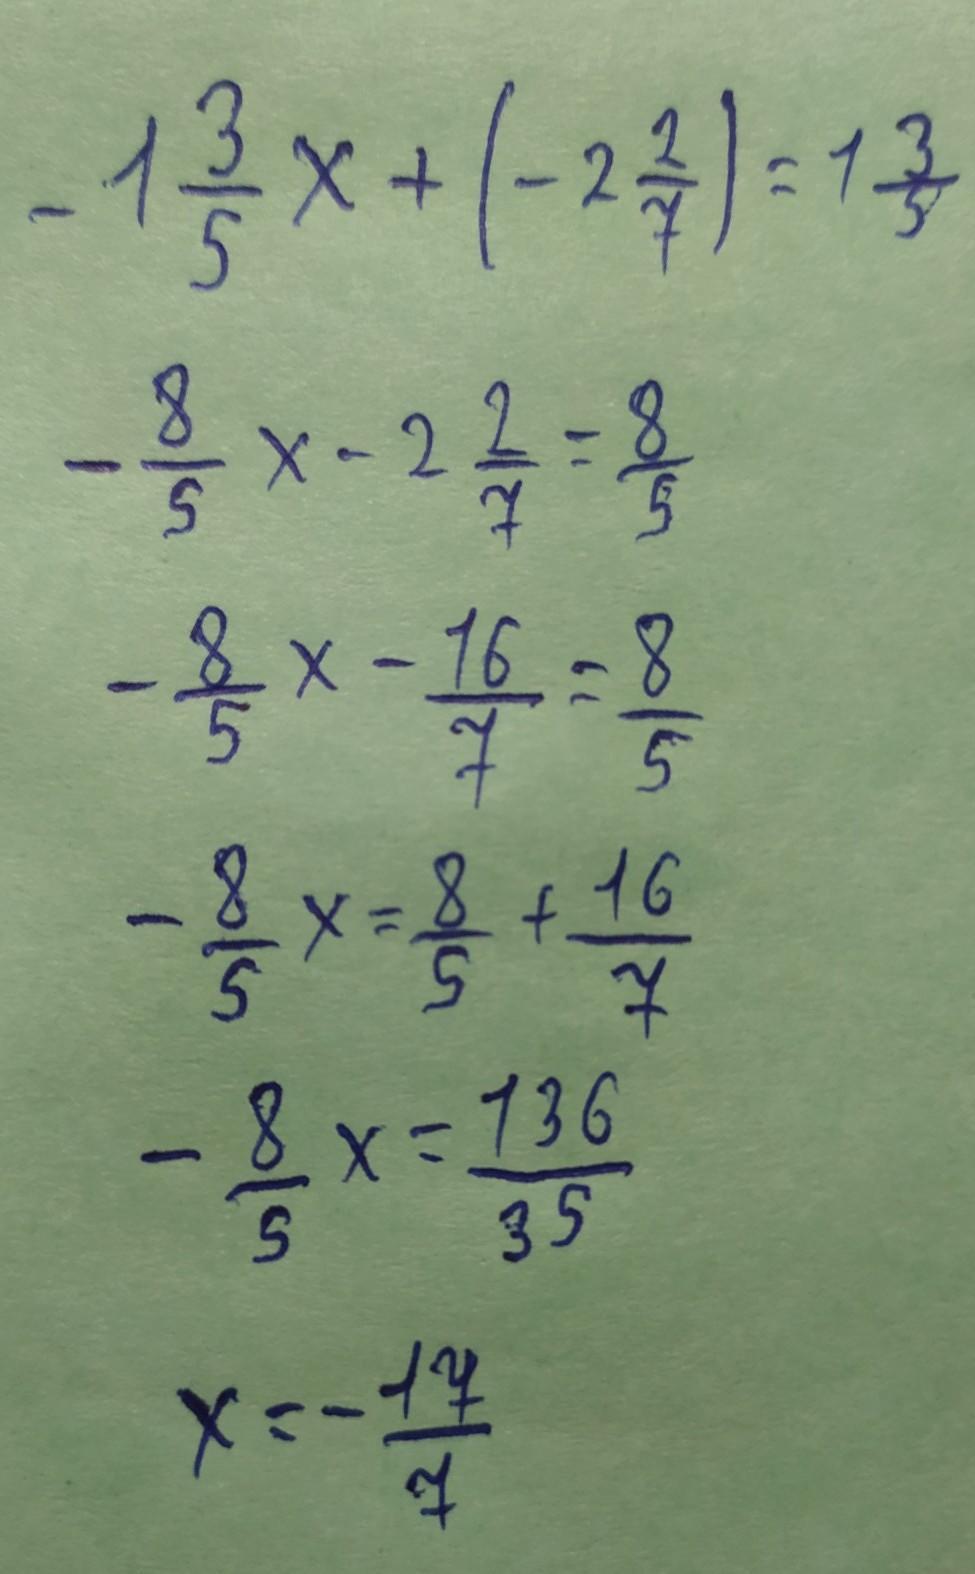 -1 3/5 x + (-2 2/7) = 1 3/5
-8/5 x - 2 2/7 = 8/5
-8/5 x - 16/7 = 8/5
-8/5 x = 8/5 + 16/7
-8/5 x = 136/35
x = -17/7